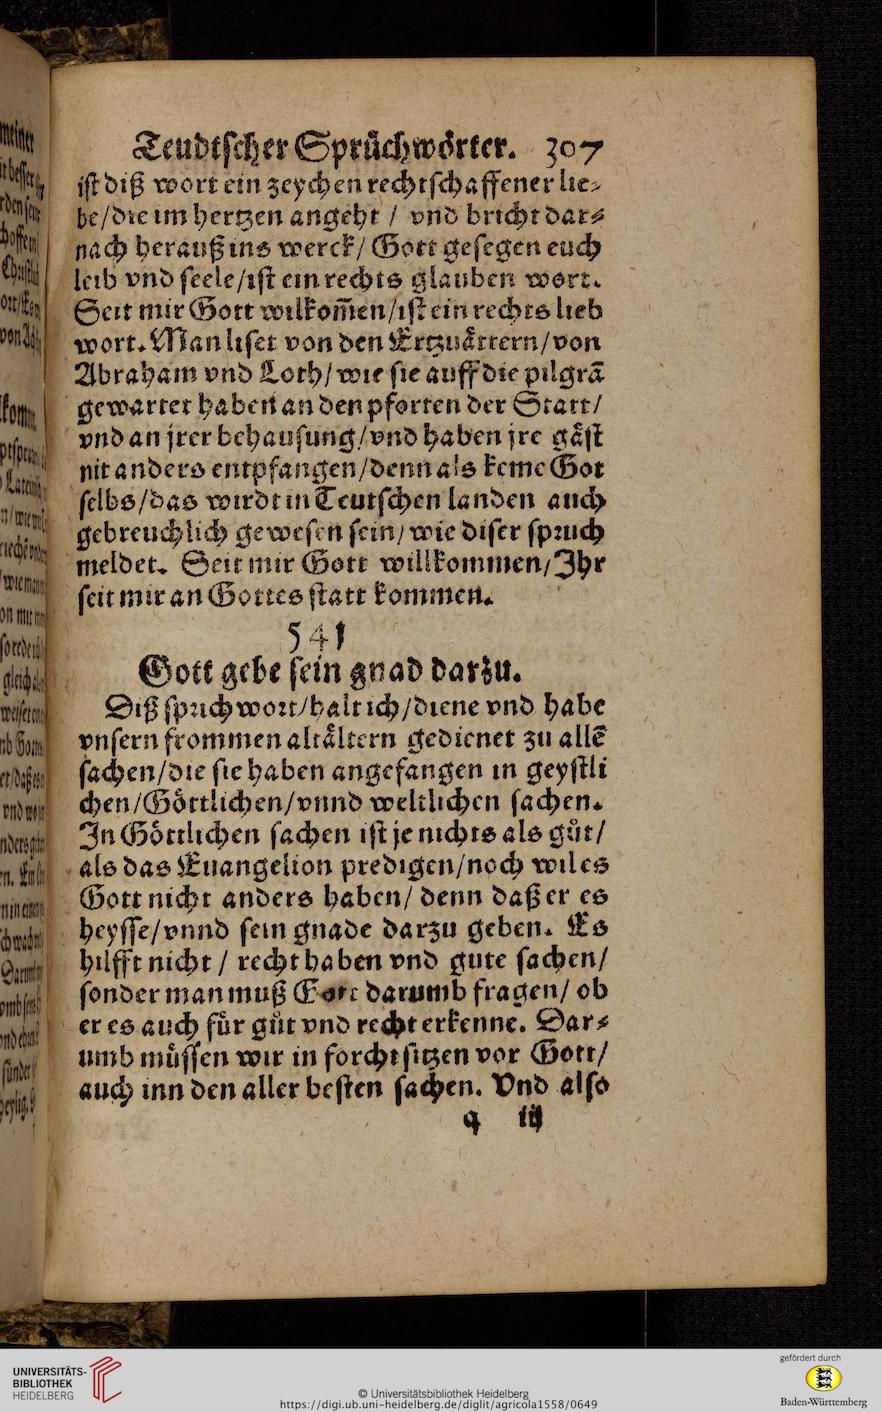 Teudtscher Sprüchwörter. 307
ist diß wort ein zeychen rechtschaffener lie-
be/die im hertzen angeht / vnd bricht dar-
nach herauß ins werck/ Gott gesegen euch
leib vnd seele/ist ein rechts glauben wort.
Seit mir Gott wilkom̃en/ist ein rechts lieb
wort. Man liset von den Ertzuåttern/von
Abraham vnd Loth/wie sie auff die pilgrã
gewartet haben an den pforten der Statt/
vnd an jrer behausung/vnd haben jre gåst
nit anders entpfangen/denn als keme Got
selbs/das wirdt in Teutschen landen auch
gebreuchlich gewesen sein/wie diser spruch
meldet. Seit mir Gott willkommen/Ihr
seit mir an Gottes statt kommen.
541
Gott gebe sein gnad darzu.
Diß sprichwort/halt ich/diene vnd habe
vnsern frommen altåltern gedienet zu allẽ
sachen/die sie haben angefangen in geystli
chen/Göttlichen/vnnd weltlichen sachen.
In Göttlichen sachen ist je nichts als gůt/
als das Euangelion predigen/noch wil es
Gott nicht anders haben/ denn daß er es
heysse/vnnd sein gnade darzu geben. Es
hilfft nicht / recht haben vnd gute sachen/
sonder man muß Gott darumb fragen/ ob
er es auch für gůt vnd recht erkenne. Dar-
umb müssen wir in forcht sitzen vor Gott/
auch inn den aller besten sachen. Vnd also
q iij
UNIVERSITÄTS-
BIBLIOTHEK
HEIDELBERG
© Universitätsbibliothek Heidelberg
https://digi.ub.uni-heidelberg.de/diglit/agricola1558/0649
gefördert durch
Baden-Württemberg